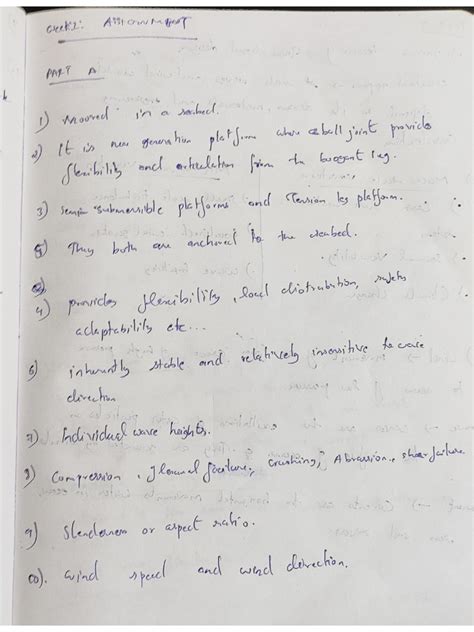 Week 2: ASSIGNMENT
PART A
1) Moored in a seabed.
2) It is new generation platform where a ball joint provide
flexibility and articulation from the buoyant leg.
3) Semi submersible platforms and Tension leg platform.
5) They both are anchored to the seabed.
4) provides flexibility, load distribution, safety
adaptability etc...
6) inherently stable and relatively insensitive to wave
direction
7) Individual wave heights.
8) Compression, flexural failure, crushing, Abrassion, shear failure
9) Slenderness or aspect ratio.
10). wind speed and wind direction.